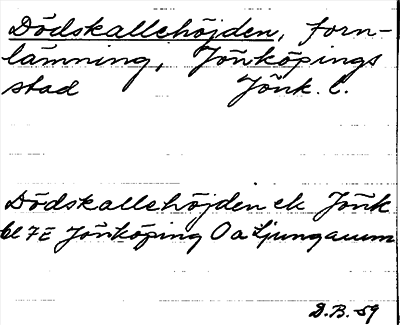 Dödskallehöjden, forn-
lämning, Jönköpings
stad Jönk. l.
Dödskallehöjden ek Jönk
bl 7E Jönköping O a Ljungarum
D.B. -59